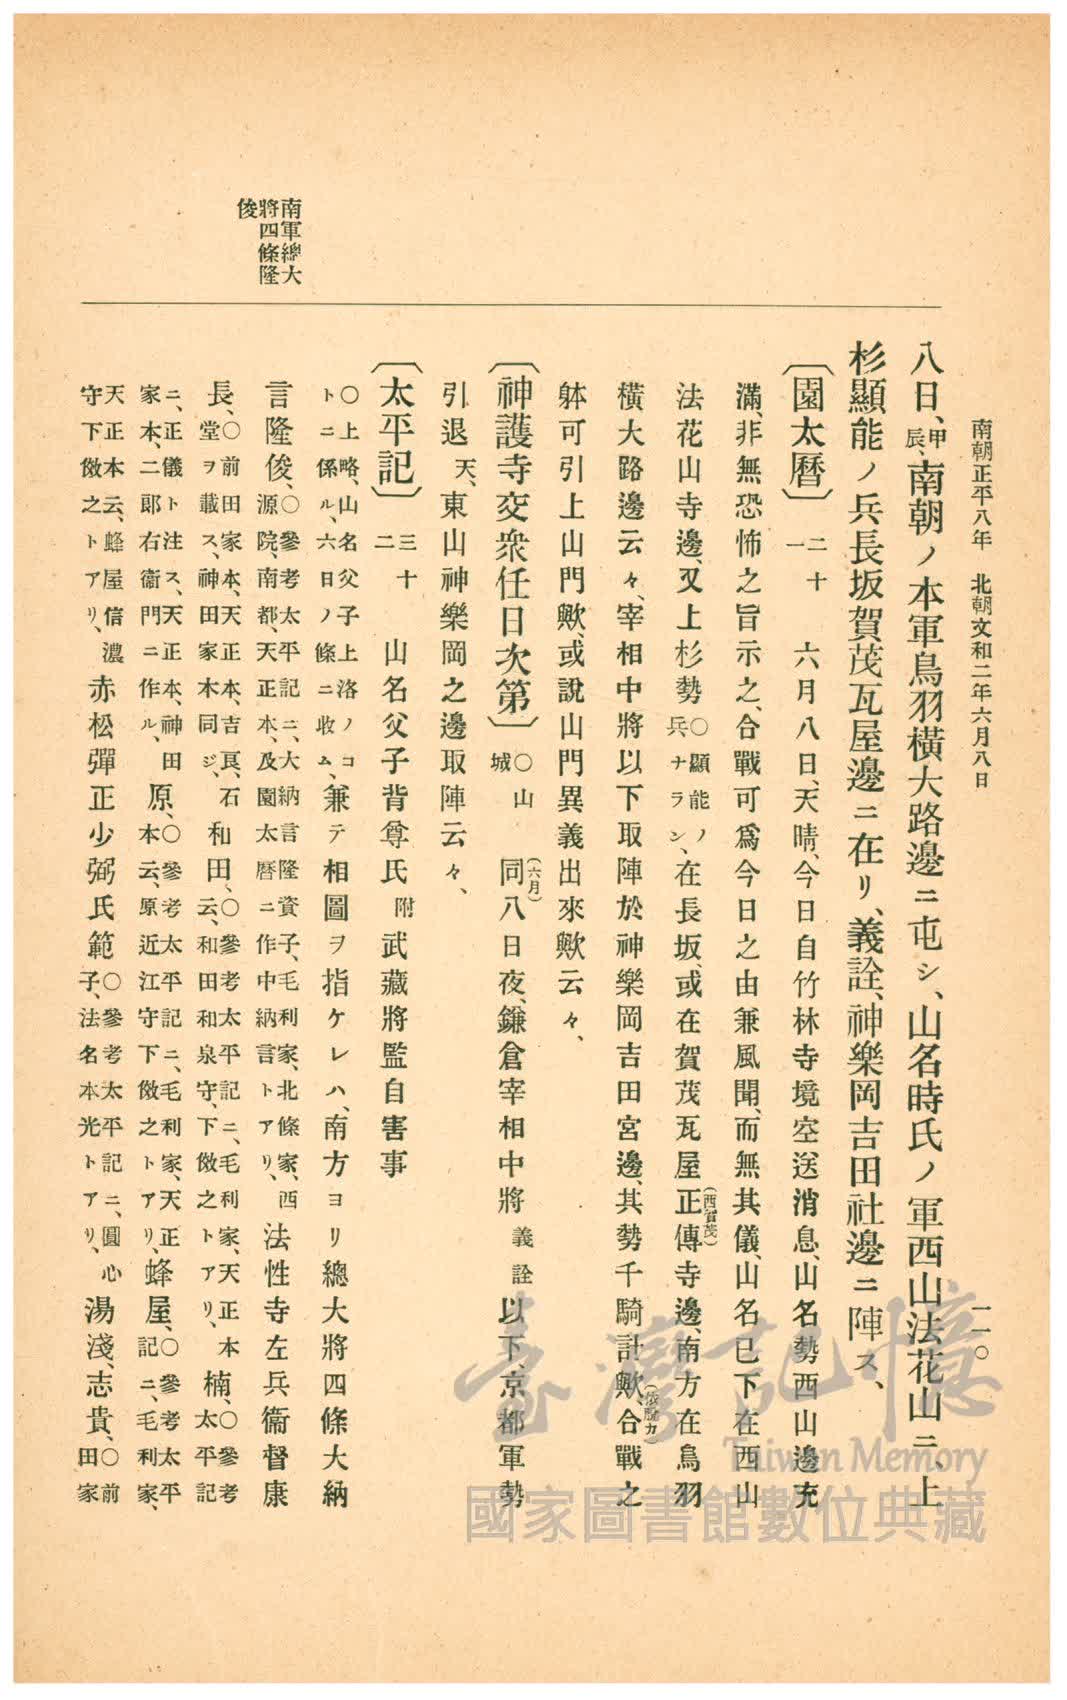 南朝正平八年　北朝文和二年六月八日
一一〇
八日、甲辰、南朝ノ本軍鳥羽橫大路邊ニ屯シ、山名時氏ノ軍西山法花山ニ、上
杉顯能ノ兵長坂賀茂瓦屋邊ニ在リ、義詮、神樂岡吉田社邊ニ陣ス、
〔園太曆〕二十一　六月八日、天晴、今日自竹林寺境空送消息、山名勢西山邊充
滿、非無恐怖之旨示之、合戰可爲今日之由兼風聞、而無其儀、山名已下在西山
法花山寺邊、又上杉勢○顯能ノ兵ナラン、在長坂、或在賀茂瓦屋正傳寺邊、南方在鳥羽
(西賀茂)
橫大路邊云々、宰相中將以下取陣於神樂岡吉田宮邊、其勢千騎計歟、合戰之
(依脫カ)
躰可引上山門歟、或說山門異義出來歟云々、
〔神護寺交衆任日次第〕○山城　同八日夜、鎌倉宰相中將義詮以下、京都軍勢
(六月)
引退天、東山神樂岡之邊取陣云々、
〔太平記〕三十二　山名父子背尊氏附武藏將監自害事
○上略、山名父子上洛ノコトニ係ル、六日ノ條ニ收ム、兼テ相圖ヲ指ケレハ、南方ヨリ總大將四條大納
南軍總大將四條隆俊
言隆俊、○參考太平記ニ、大納言隆資子、毛利家、北條家、西源院、南都、天正本、及園太曆ニ作中納言トアリ、法性寺左兵衞督康
長、○前田家本、天正本、吉良、石堂ヲ載ス、神田家本同ジ、和田、○參考太平記ニ、毛利家、天正本云、和田和泉守、下倣之トアリ、楠、○參考太平記
ニ、正儀ト注ス、天正本、神田家本、二郎右衞門ニ作ル、原、○參考太平記ニ、毛利家、天正本云、原近江守下倣之トアリ、蜂屋、○參考太平記ニ、毛利家、
天正本云、蜂屋信濃守下倣之トアリ、赤松彈正少弼氏範○參考太平記ニ、圓心子、法名本光トアリ、湯淺、志貴、○前田家
臺灣記憶
Taiwan Memory
國家圖書館數位典藏